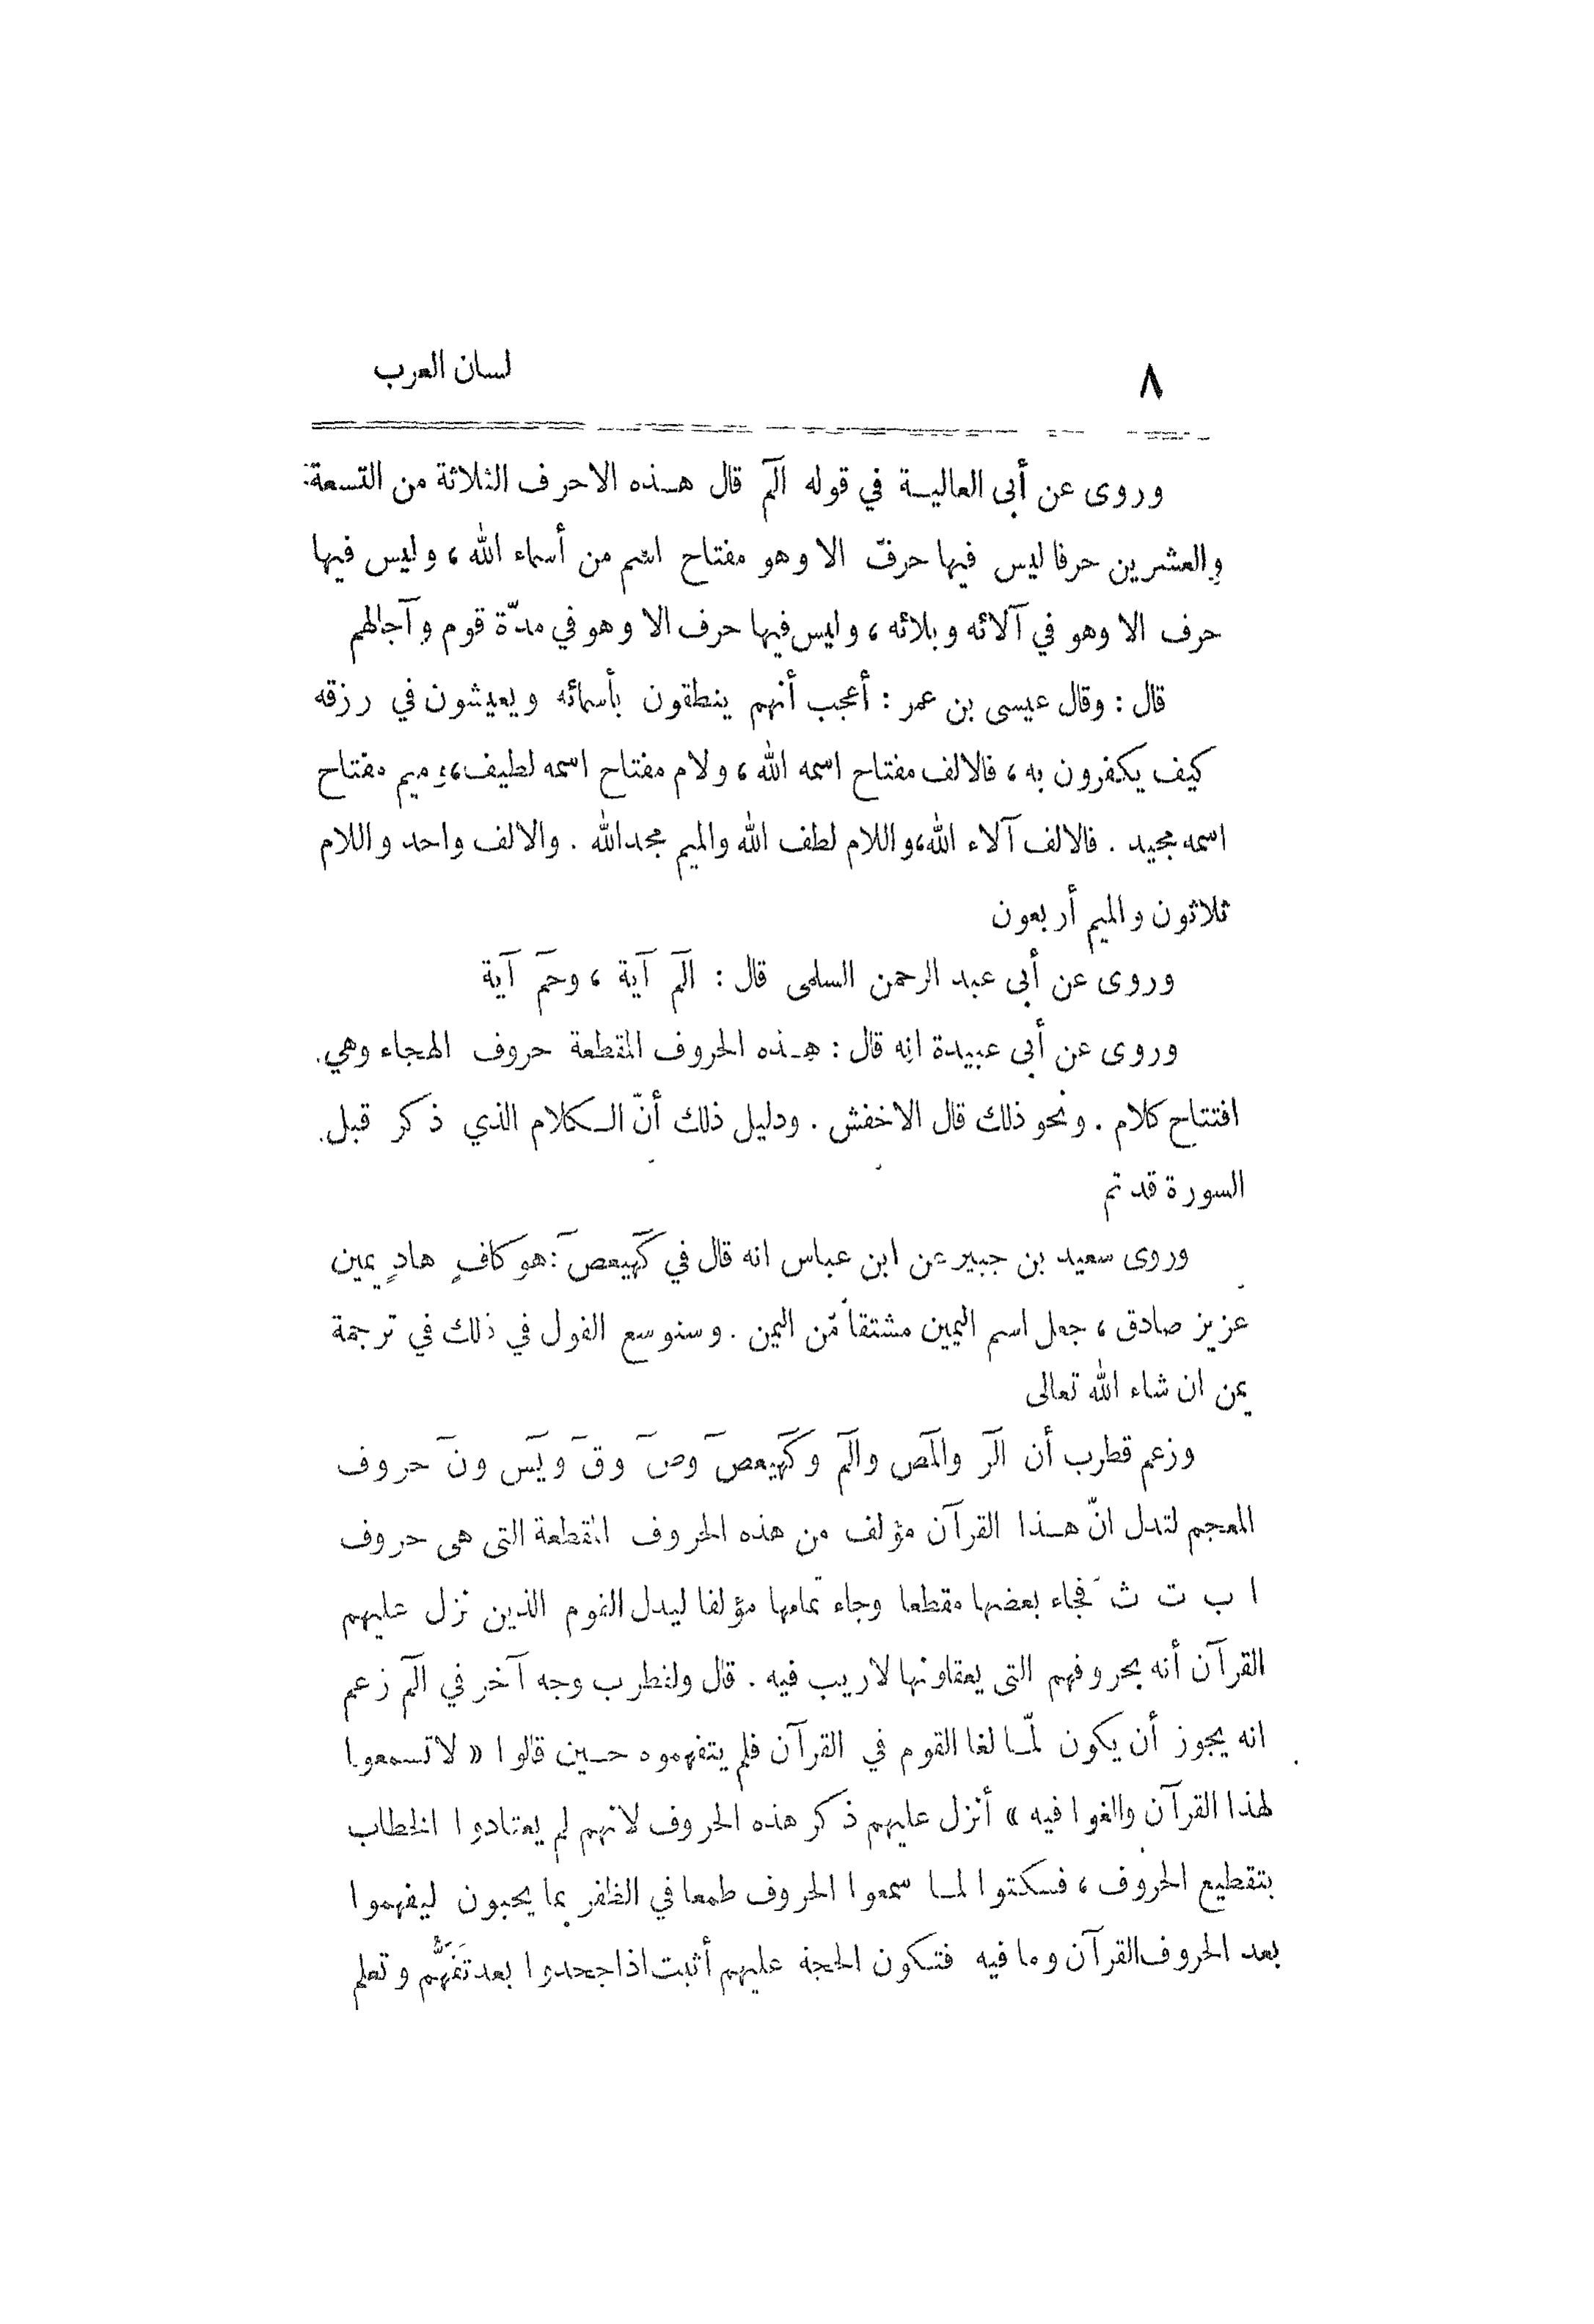 ٨ لسان العرب
وروى عن أبى العاليـة في قوله آلم قال هـذه الاحرف الثلاثة من التسعة
والعشرين حرفا ليس فيها حرفٌ الا وهو مفتاح اسم من أسماء الله ، وليس فيها
حرف الا وهو في آلائه وبلائه ، وليس فيها حرف الا وهو في مدّة قوم وآجالهم
قال : وقال عيسى بن عمر : أعجب أنهم ينطقون بأسمائه ويعيشون في رزقه
كيف يكفرون به ، فالالف مفتاح اسمه الله ، ولام مفتاح اسمه لطيف ، وميم مفتاح
اسمه مجيد . فالالف آلاء الله ، واللام لطف الله والميم مجد الله . والالف واحد واللام
ثلاثون والميم أربعون
وروى عن أبى عبد الرحمن السلمى قال : الٓمٓ آية ، وحمٓ آية
وروى عن أبى عبيدة انه قال : هـذه الحروف المقطعة حروف الهجاء وهي
افتتاح كلام . ونحو ذلك قال الاخفش . ودليل ذلك أنّ الـكلام الذي ذكر قبل
السورة قد تم
وروى سعيد بن جبير عن ابن عباس انه قال في كٓهيعصٓ : هو كافٍ هادٍ يمين
عزيز صادق ، جعل اسم اليمين مشتقاً من اليمن . وسنوسع القول في ذلك في ترجمة
يمن ان شاء الله تعالى
وزعم قطرب أن الٓرٓ والٓمٓصٓ والٓمٓ وكٓهيعصٓ وصٓ وقٓ ويٓسٓ ونٓ حروف
المعجم لتدل انّ هـذا القرآن مؤلف من هذه الحروف المقطعة التى هى حروف
ا ب ت ث فجاء بعضها مقطعا وجاء تمامها مؤلفا ليدل القوم الذين نزل عليهم
القرآن أنه بحروفهم التى يعقلونها لاريب فيه . قال ولقطرب وجه آخر في الٓمٓ زعم
انه يجوز أن يكون لمّـا لغا القوم في القرآن فلم يتفهموه حـين قالوا « لا تسمعوا
لهذا القرآن والغوا فيه » أنزل عليهم ذكر هذه الحروف لانهم لم يعتادوا الخطاب
بتقطيع الحروف ، فسكتوا لمـا سمعوا الحروف طمعا في الظفر بما يحبون ليفهموا
بعد الحروف القرآن وما فيه فتكون الحجة عليهم أثبت اذا جحدوا بعد تَفَهُّم وتعلم